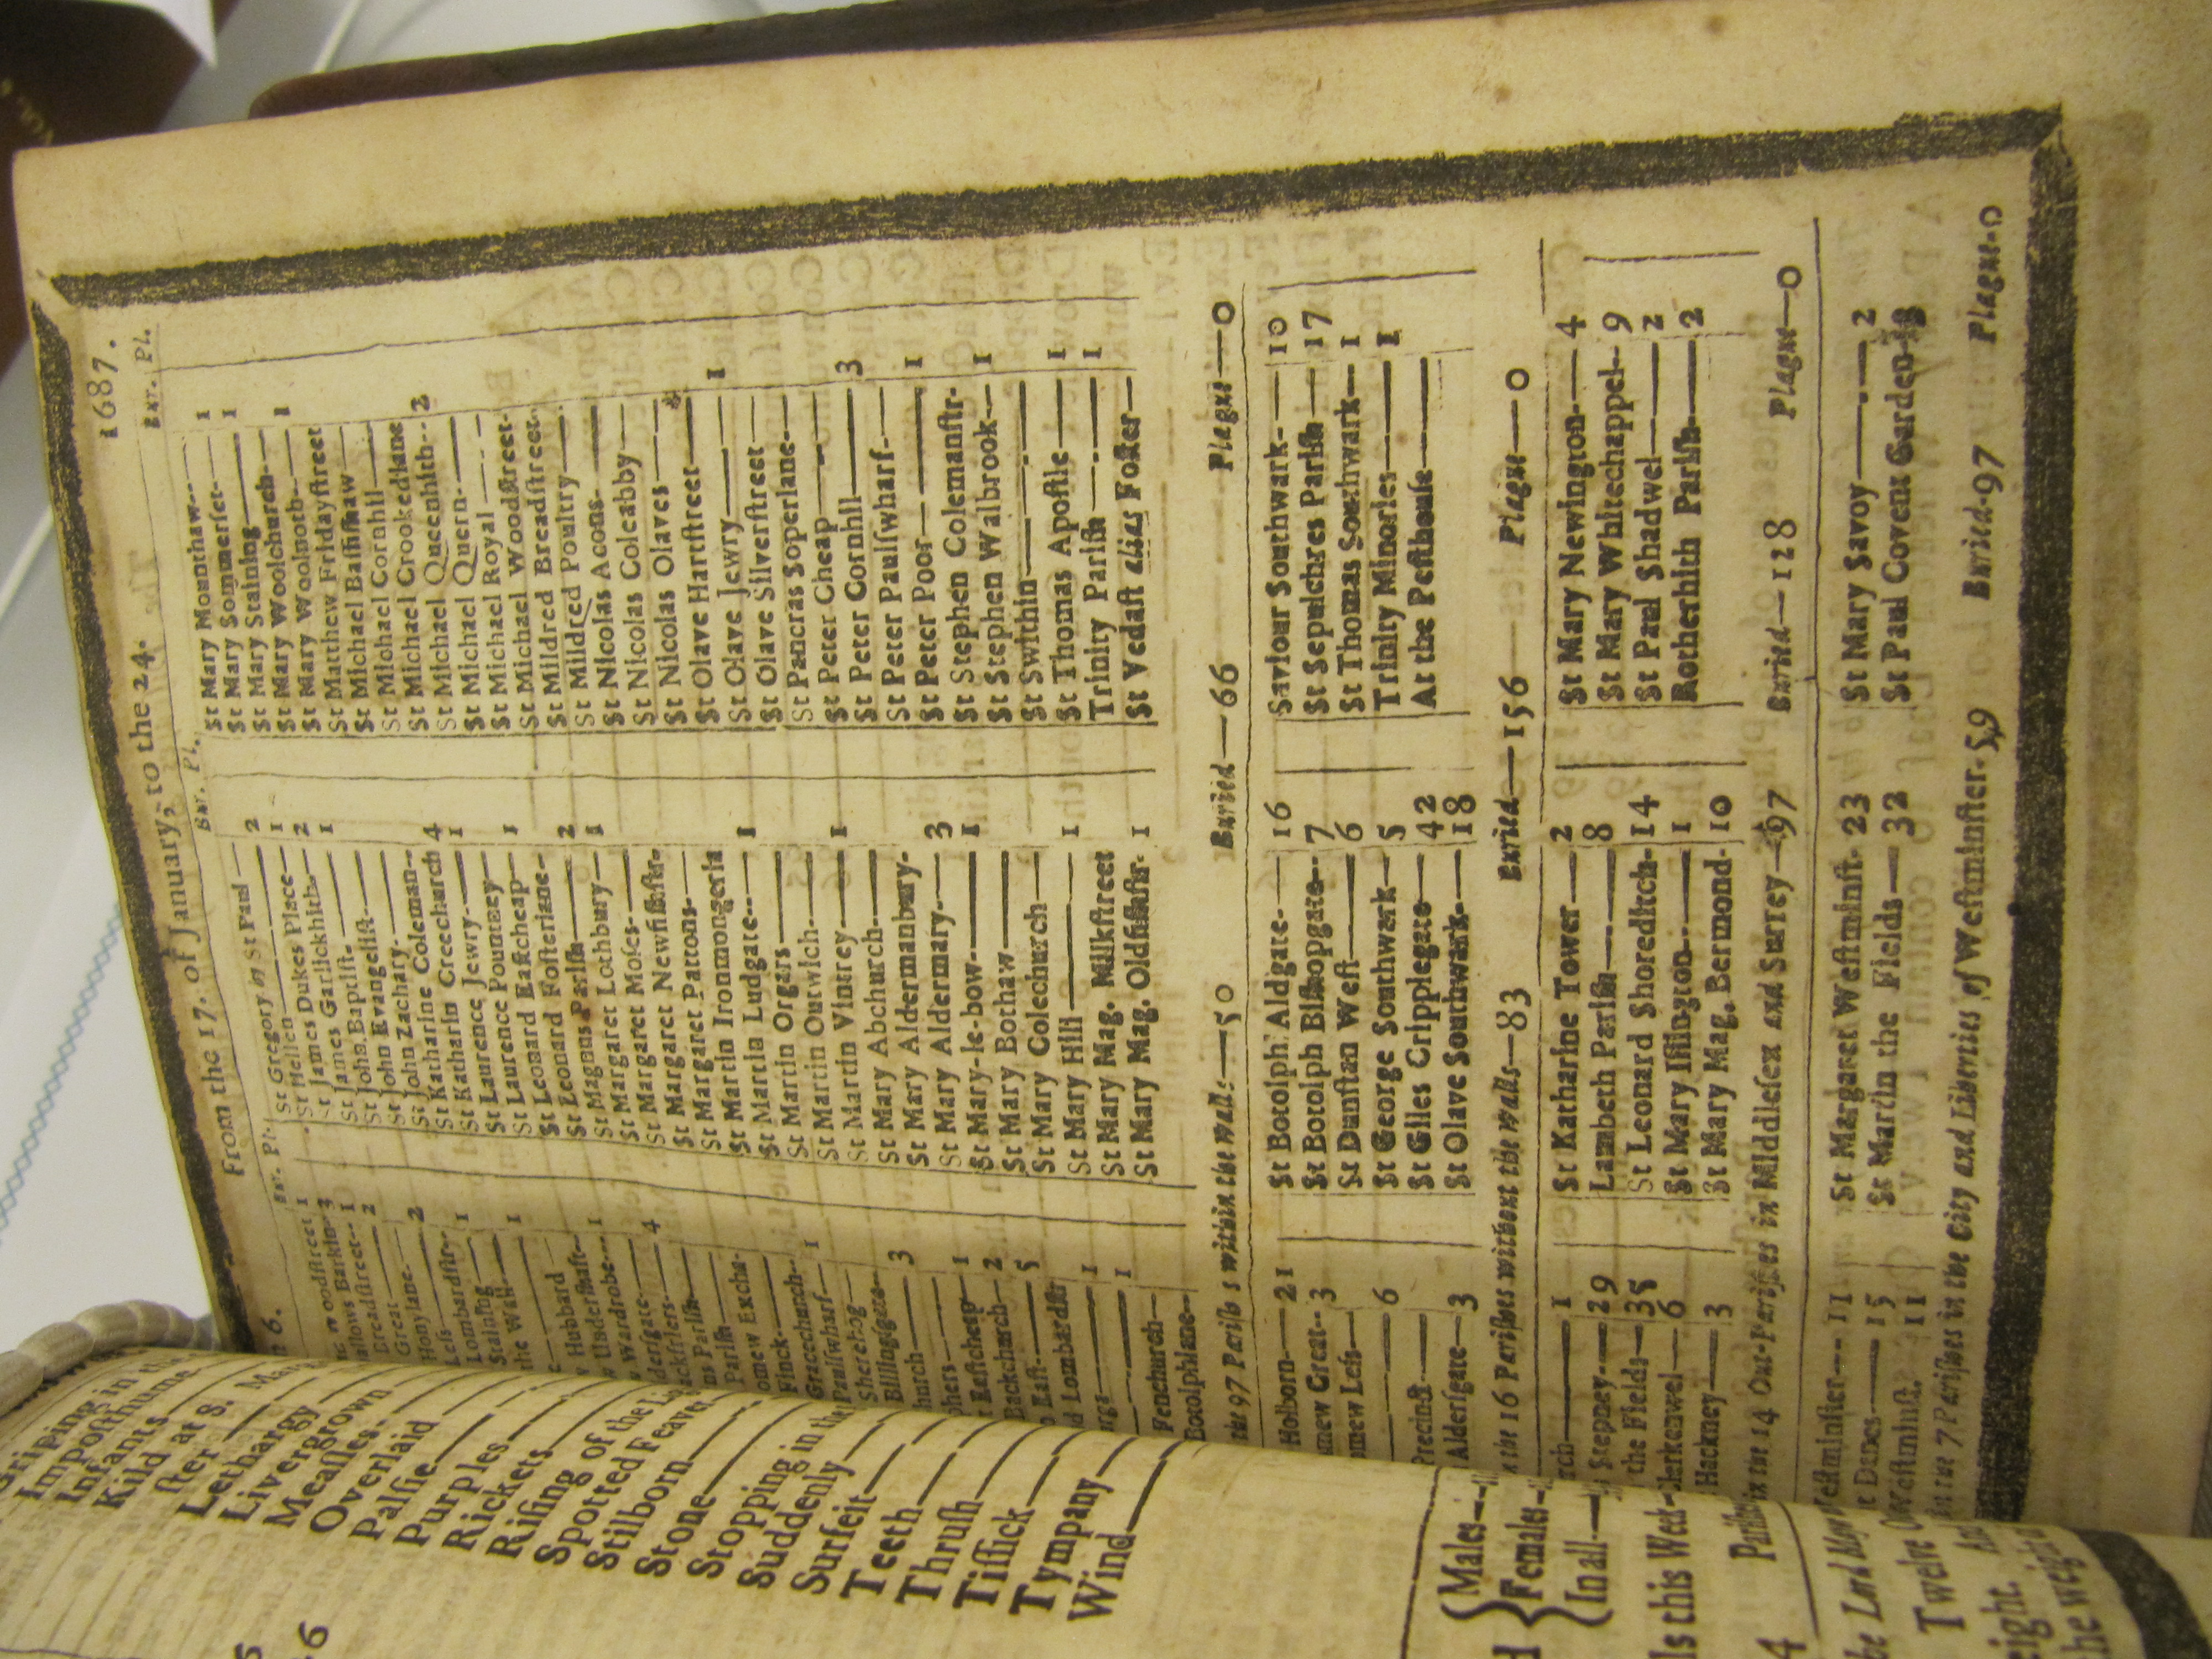 From the 17. of January, to the 24. 1687.
Bur. Pl.
Bur. Pl.
Bur. Pl.
oodstreet 1
allows Barkin- 3
Breadstreet-- 1
Great 2
Honylane-
Less 2
Lombardstr--
Staining 1
the Wall-
1
Hubbard
Undershaft-- 1
Wardrobe---
dersgate- 4
ackfriers-
ns Parish
Parish
omew Excha-
Finck
Gracechurch-- 1
Paulswharf-
Sherehog-
Billingsgate-
hurch 3
phers
Eastcheap 1
Backchurch 2
East- 5
Lombardstr
1
1
Fenchurch-
Botolphlane-
St Gregory by St Paul 2
St Hellen 1
St James Dukes Place 2
St James Garlickhith- 1
St John Baptist-
St John Evangelist
St John Zachary-
St Katharine Coleman--
St Katharin Creechurch 4
St Laurence Jewry 1
St Laurence Pountney
St Leonard Eastcheap 1
St Leonard Fosterlane-
St Magnus Parish 2
St Margaret Lothbury 1
St Margaret Moses
St Margaret Newfishstr-
St Margaret Pattons
St Martin Ironmongerla
St Martin Ludgate 1
St Martin Orgars
St Martin Outwich
St Martin Vintrey 1
St Mary Abchurch
St Mary Aldermanbury-
St Mary Aldermary 3
St Mary-le-bow 1
St Mary Bothaw
St Mary Colechurch
St Mary Hill 1
St Mary Mag. Milkstreet
St Mary Mag. Oldfishstr- 1
St Mary Mounthaw 1
St Mary Sommerset 1
St Mary Staining
St Mary Woolchurch 1
St Mary Woolnoth
St Matthew Fridaystreet
St Michael Bassishaw
St Michael Cornhil
St Michael Crookedlane
St Michael Queenhith-- 2
St Michael Quern
St Michael Royal
St Michael Woodstreet-
St Mildred Breadstreet
St Mildred Poultry
St Nicolas Acons
St Nicolas Coleabby
St Nicolas Olaves
St Olave Hartstreet
St Olave Jewry 1
St Olave Silverstreet
St Pancras Soperlane
St Peter Cheap
St Peter Cornhil 3
St Peter Paulswharf
St Peter Poor 1
St Stephen Colemanstr-
St Stephen Walbrook 1
St Swithin
St Thomas Apostle 1
Trinity Parish 1
St Vedast alias Foster
the 97 Parishes within the walls 50 Buried 66 Plague 0
Holborn 21
mew Great-- 3
mew Less
Precinct 6
Aldersgate 3
St Botolph Aldgate 16
St Botolph Bishopgate 7
St Dunstan West 6
St George Southwark 5
St Giles Cripplegate 42
St Olave Southwark 18
Saviour Southwark 10
St Sepulchres Parish 17
St Thomas Southwark 1
Trinity Minories 1
At the Pesthouse
the 16 Parishes without the walls 83 Buried 156 Plague 0
rch 1
Stepney 29
the Fields 38
larkenwel 6
Hackney 3
St Katharine Tower 2
Lambeth Parish 8
St Leonard Shoreditch 14
St Mary Islington 1
St Mary Mag. Bermond 10
St Mary Newington 4
St Mary Whitechappel 9
St Paul Shadwel 2
Rotherhith Parish 2
in the 14 Out-Parishes in Middlesex and Surrey 97 Buried 128 Plague 0
Westminster 11
t Danes 15
Westminst. 11
St Margaret Westminst. 23
St Martin the Fields 32
St Mary Savoy 2
St Paul Covent Garden
in the 7 Parishes in the City and Liberties of Westminster. 59 Buried 97 Plague 0
Griping in the
Imposthume
Infants
Kild at S.
ster
Lethargy
Livergrown
Measles
Overlaid
Palsie
Purples
Rickets
Rising of the
Spotted Feaver
Stilborn
Stone
Stopping in the
Suddenly
Surfeit
Teeth
Thrush
Tissick
Tympany
Wind
Males
Females
In all
ls this Week
4
Twelve
eight.
he weight